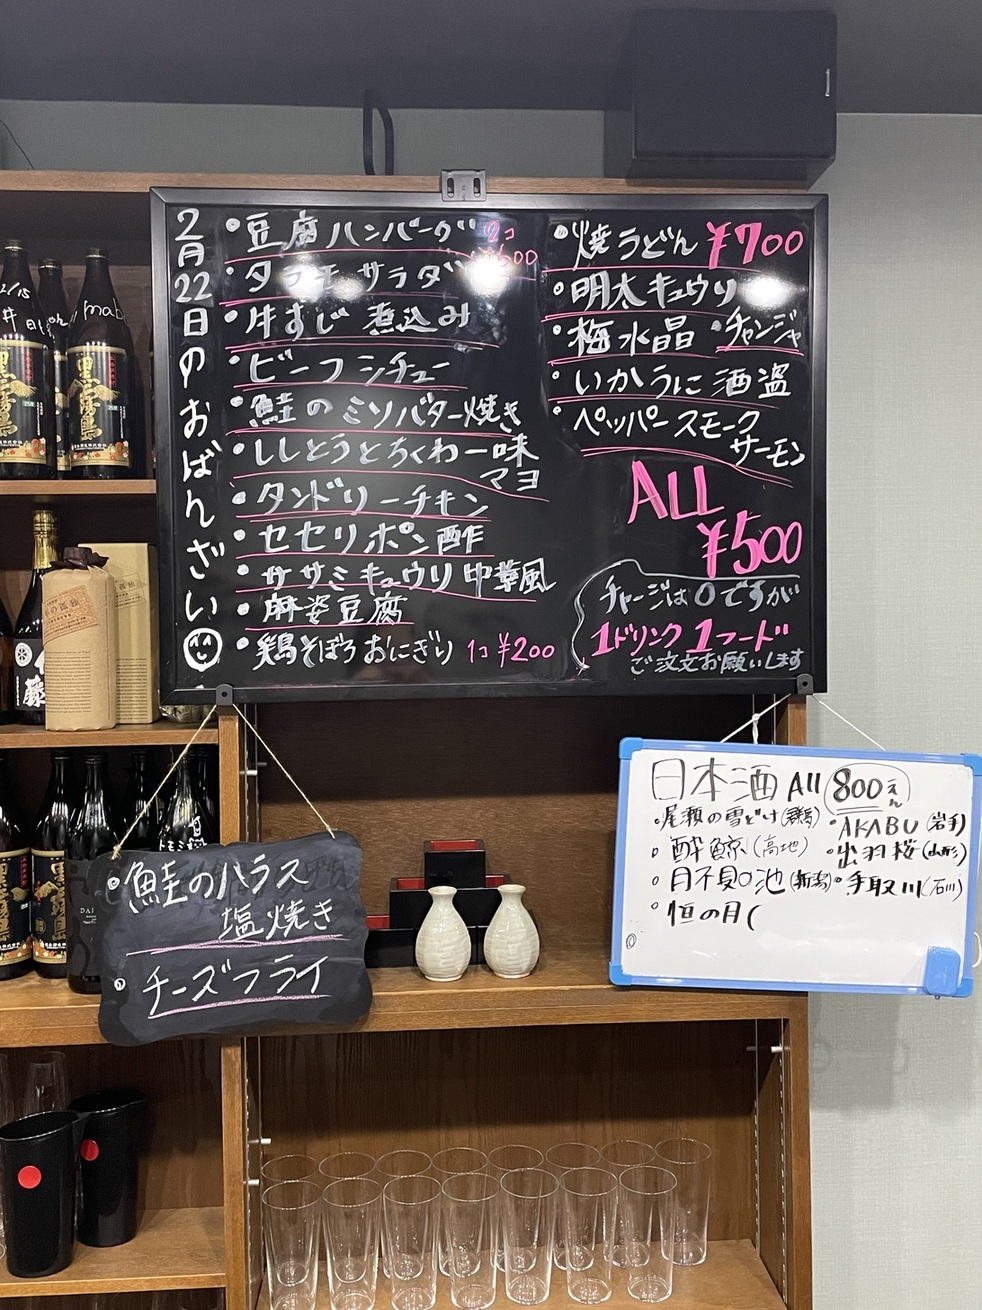 2月22日のおばんざい
・豆腐ハンバーグ 2コ ¥600
・タラモサラダ
・牛すじ煮込み
・ビーフシチュー
・鮭のミソバター焼き
・ししとうとちくわ一味
マヨ
・タンドリーチキン
・セセリポン酢
・ササミキュウリ中華風
・麻婆豆腐
・鶏そぼろおにぎり 1コ ¥200
・焼うどん ¥700
・明太キュウリ
・梅水晶 ・チャンジャ
・いかうに酒盗
・ペッパースモーク
サーモン
ALL
¥500
チャージは0ですが
1ドリンク1フード
ご注文お願いします
・鮭のハラス
塩焼き
・チーズフライ
日本酒 All 800えん
・尾瀬の雪どけ(群馬) ・AKABU(岩手)
・酔鯨(高地) ・出羽桜(山形)
・月不見の池(新潟) ・手取川(石川)
・恒の月(
黒霧島
黒霧島
黒霧島